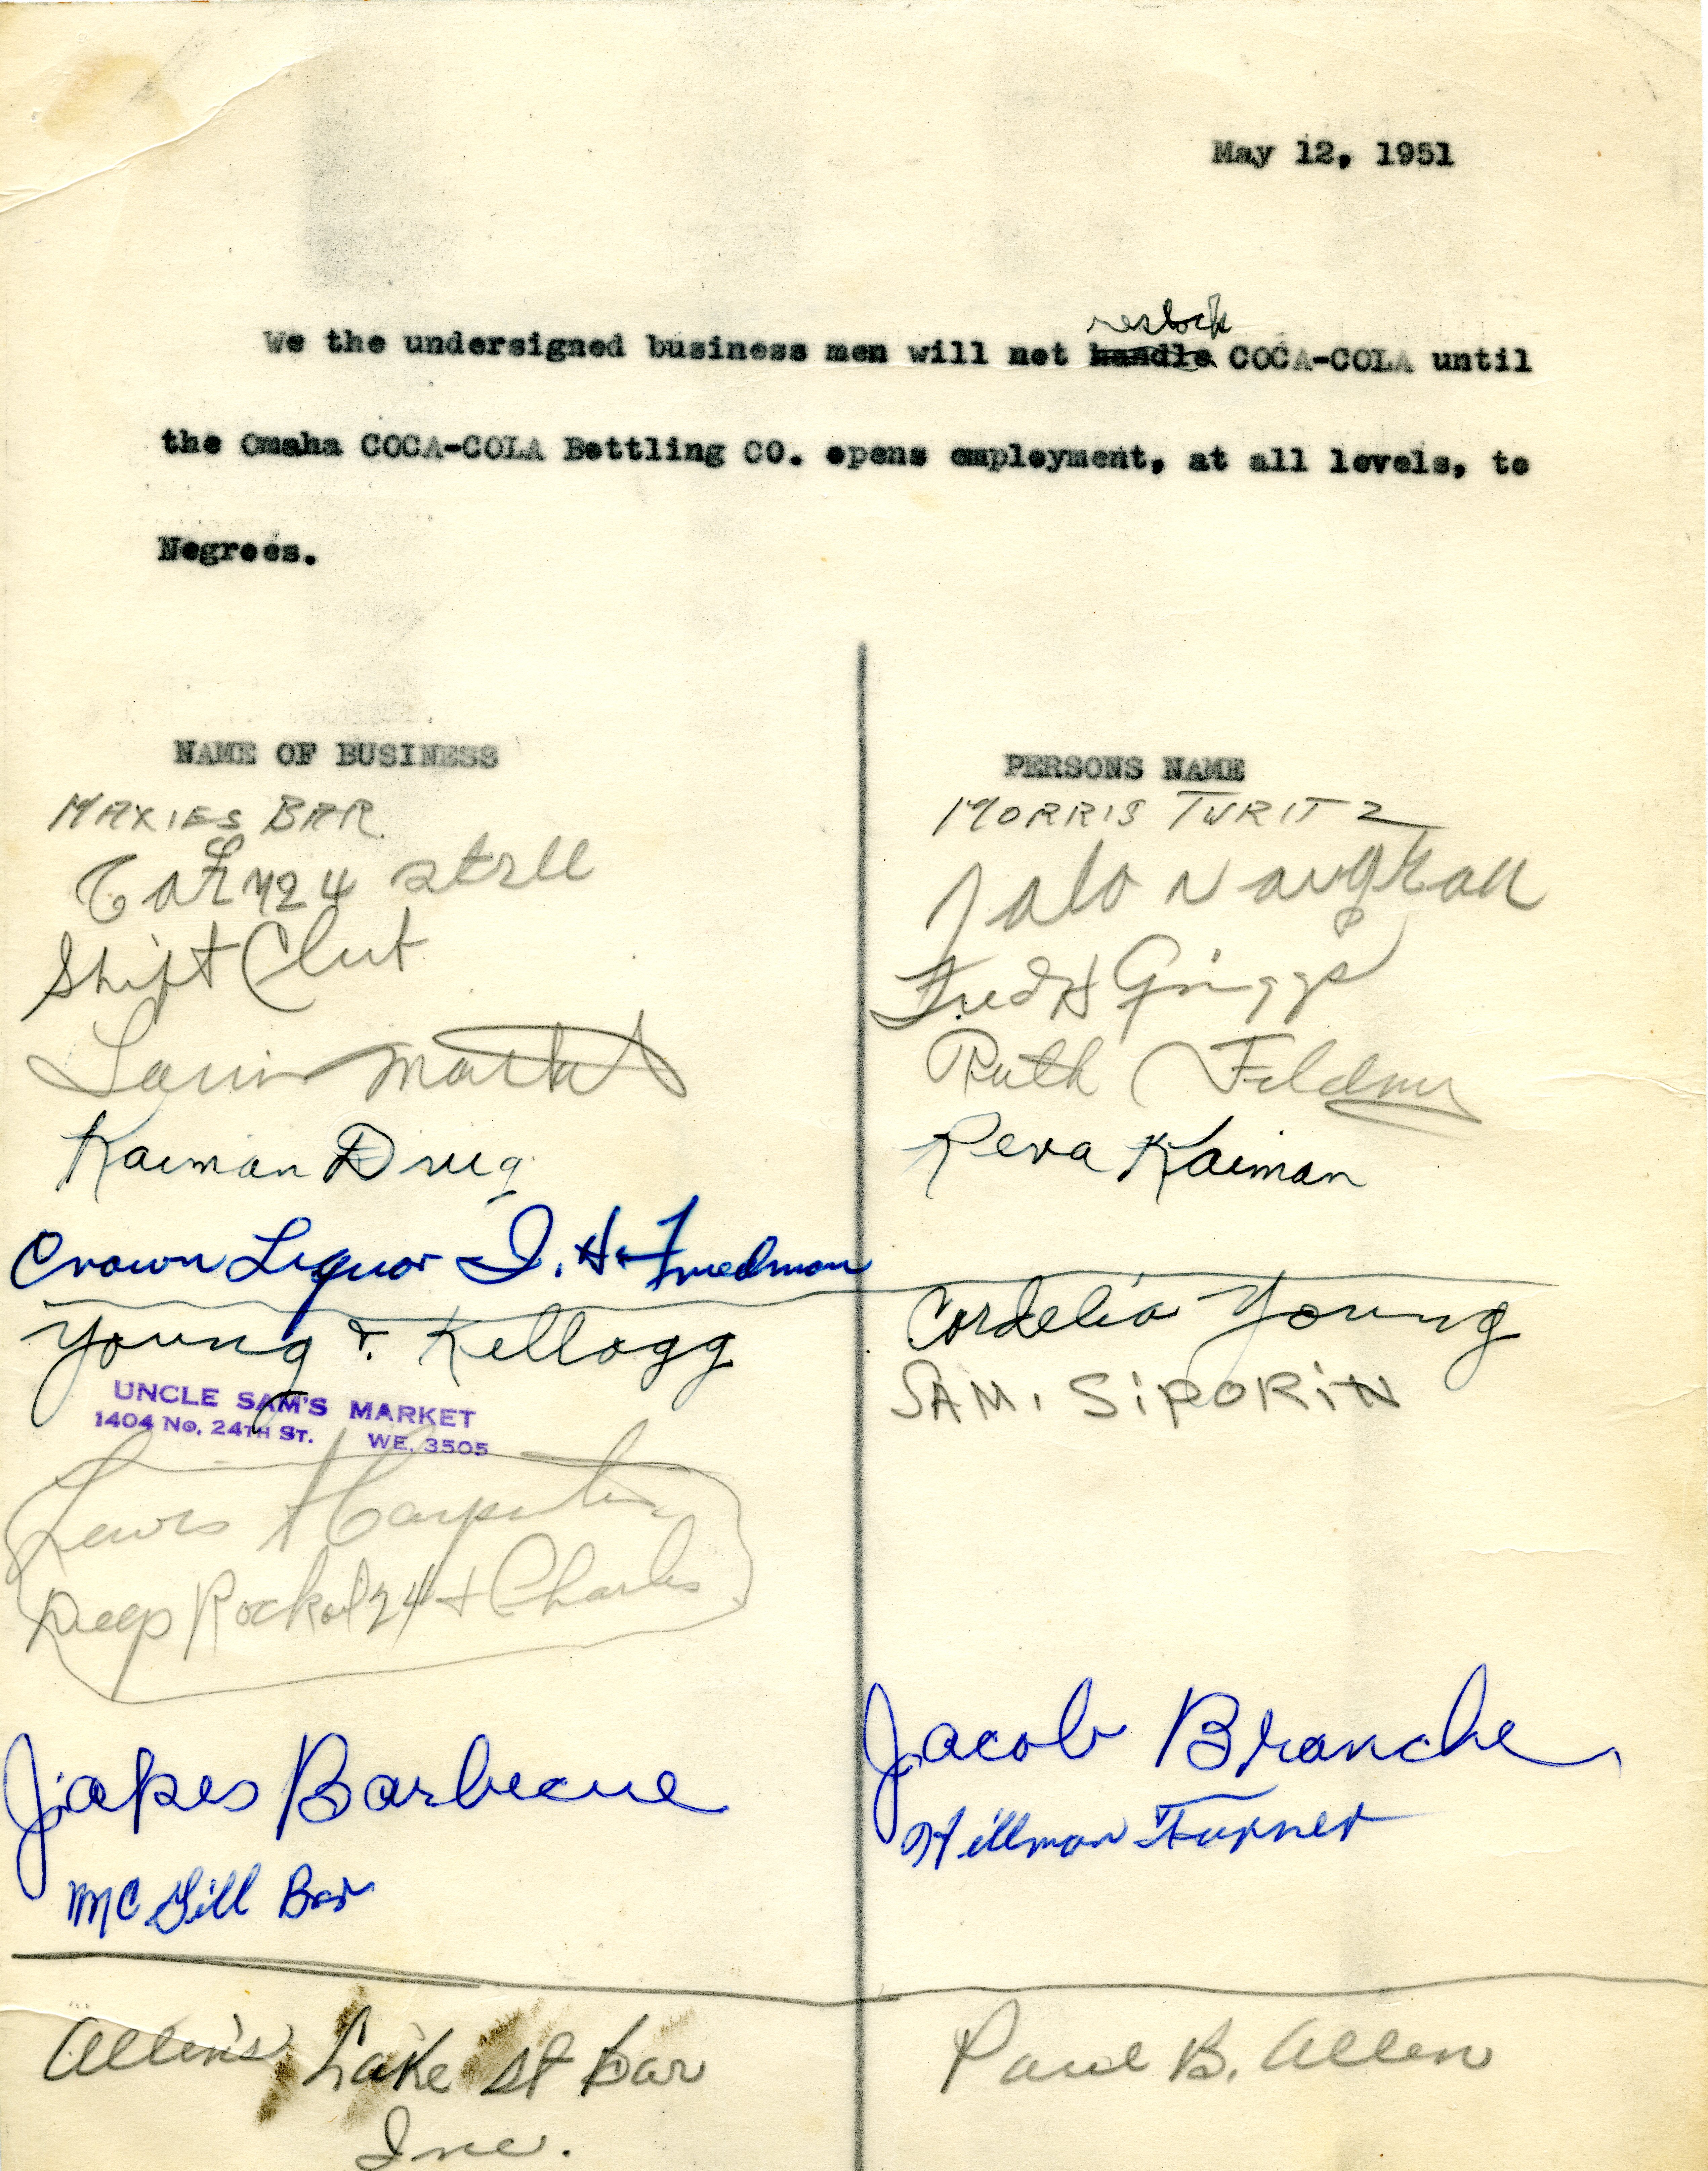 May 12, 1951
restock
We the undersigned business men will not handle COCA-COLA until
the Omaha COCA-COLA Bottling CO. opens employment, at all levels, to
Negroes.
NAME OF BUSINESS
PERSONS NAME
MAXIES BAR
MORRIS TURITZ
24
Shift Club
Fred H Griggs
Ruth Feldman
Kaiman Drug
Reva Kaiman
Crown Liquor I. H. Friedman
Young & Kellogg
Cordelia Young
UNCLE SAM'S MARKET
SAM. SiPORiN
1404 No. 24TH ST. WE. 3505
Lewis Carpenter
Deep Rock 24 + Charles
Jakes Barbecue
Jacob Branche
Hillman Turner
MC Gill Bar
Allen's Lake St Bar
Paul B. Allen
Inc.